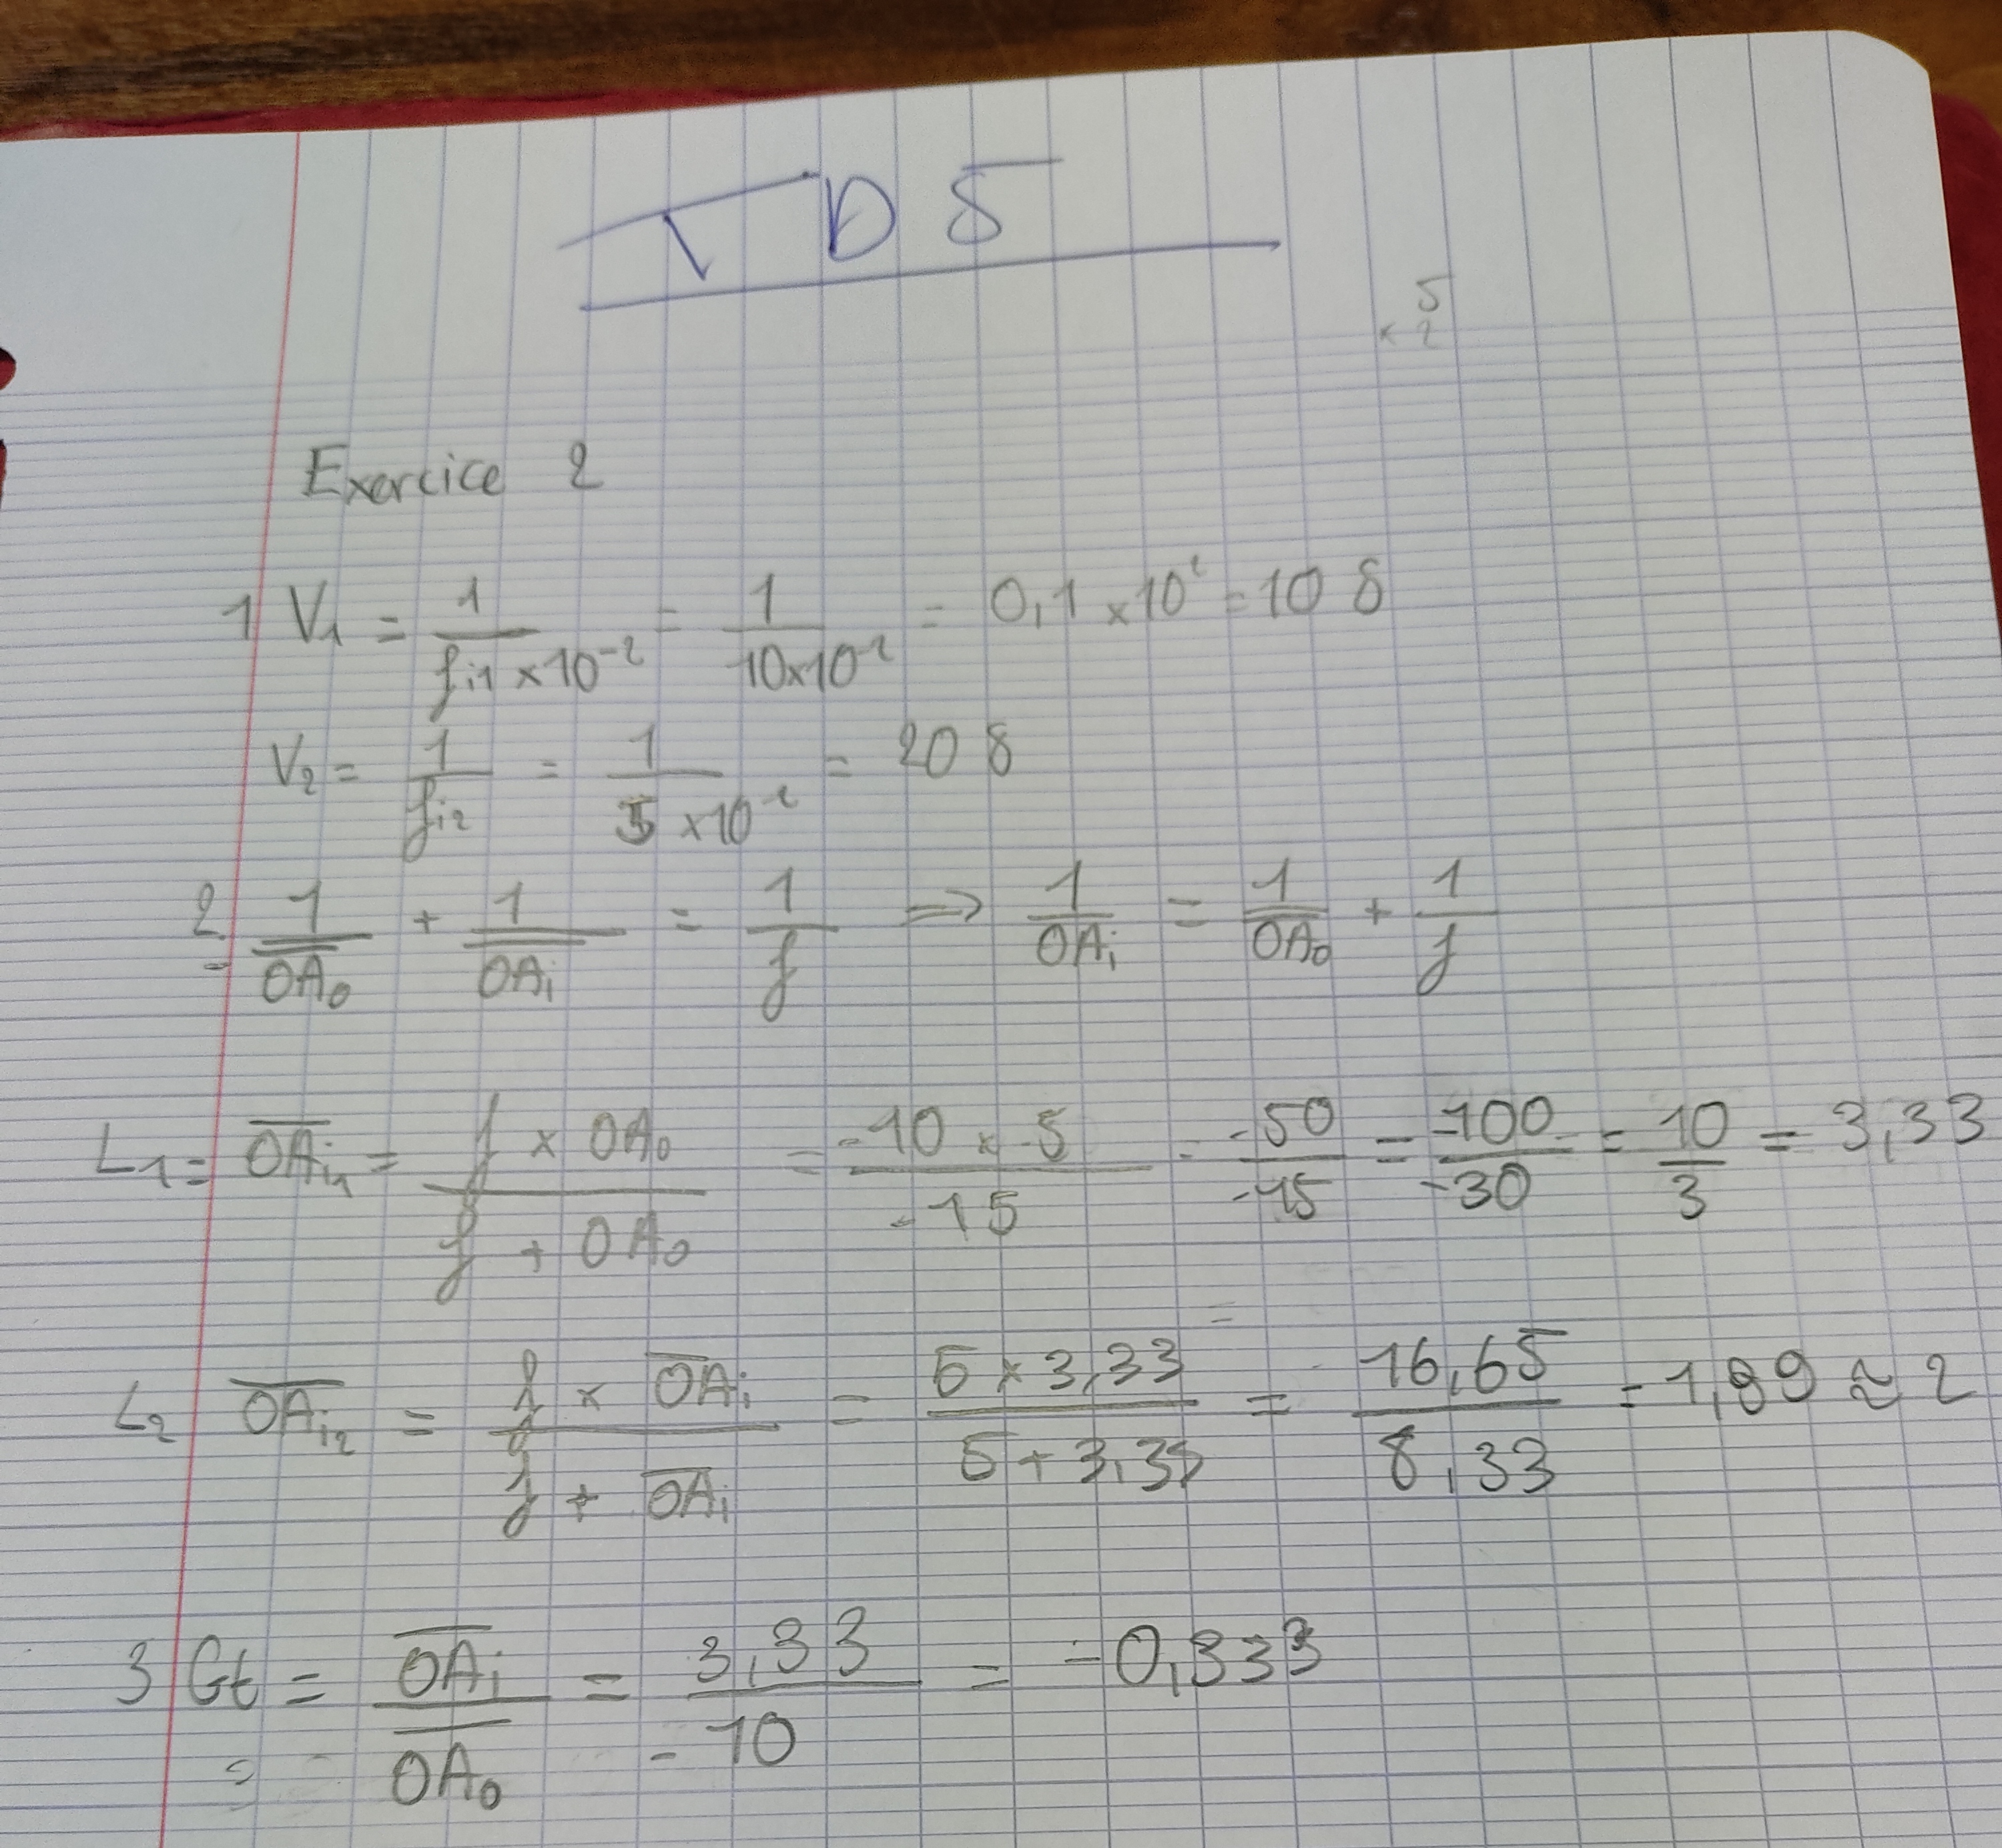 TD 5
5
× 2
Exercice 2
1 V₁ = 1/(fi₁ × 10⁻²) = 1/(10×10⁻²) = 0,1 × 10² = 10 δ
V₂ = 1/fi₂ = 1/(5 × 10⁻²) = 20 δ
2. - 1/OA₀ + 1/OAi = 1/f ⇒ 1/OAi = 1/OA₀ + 1/f
L₁ = OAi₁ = (f × OA₀)/(f + OA₀) = (-10 × -5)/(-15) = -50/-15 = -100/-30 = 10/3 = 3,33
L₂ OAi₂ = (f × OAi)/(f + OAi) = (5 × 3,33)/(5 + 3,33) = 16,65/8,33 = 1,99 ≈ 2
3 Gt = OAi/OA₀ = 3,33/-10 = -0,333
=